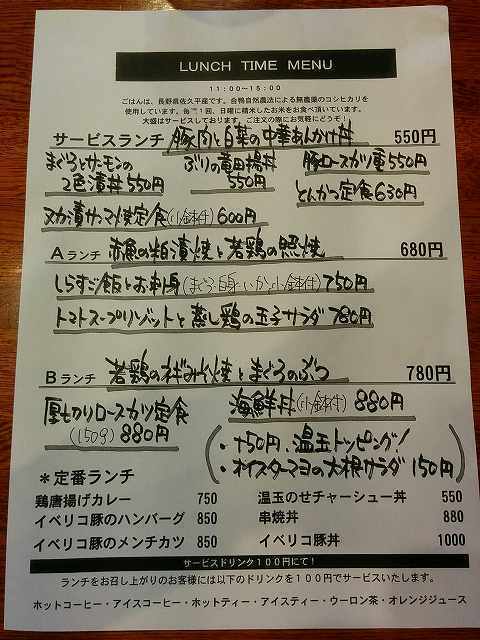 LUNCH TIME MENU
11:00～15:00
ごはんは、長野県佐久平産です。合鴨自然農法による無農薬のコシヒカリを
使用しています。毎週1回、日曜に精米したお米をお食べ頂いています。
大盛はサービスしております。ご注文の際にお気軽にどうぞ！
サービスランチ 豚肉と白菜の中華あんかけ丼 550円
まぐろとサーモンの
2色漬丼 550円
ぶりの竜田揚丼
550円
豚ロースカツ重 550円
とんかつ定食 630円
ヌカ漬サンマ焼定食(小鉢付) 600円
Aランチ 赤魚の粕漬焼と若鶏の照焼 680円
しらすご飯とお刺身(まぐろ・白身・いか・小鉢付) 750円
トマトスープリゾットと蒸し鶏の玉子サラダ 780円
Bランチ 若鶏のネギみそ焼とまぐろのぶつ 780円
厚切りロースカツ定食
(150g) 880円
海鮮丼(小鉢付) 880円
・+50円、温玉トッピング！
・オイスターマヨの大根サラダ 150円
＊定番ランチ
鶏唐揚げカレー 750
イベリコ豚のハンバーグ 850
イベリコ豚のメンチカツ 850
温玉のせチャーシュー丼 550
串焼丼 880
イベリコ豚丼 1000
サービスドリンク100円にて！
ランチをお召し上がりのお客様には以下のドリンクを１００円でサービスいたします。
ホットコーヒー・アイスコーヒー・ホットティー・アイスティー・ウーロン茶・オレンジジュース